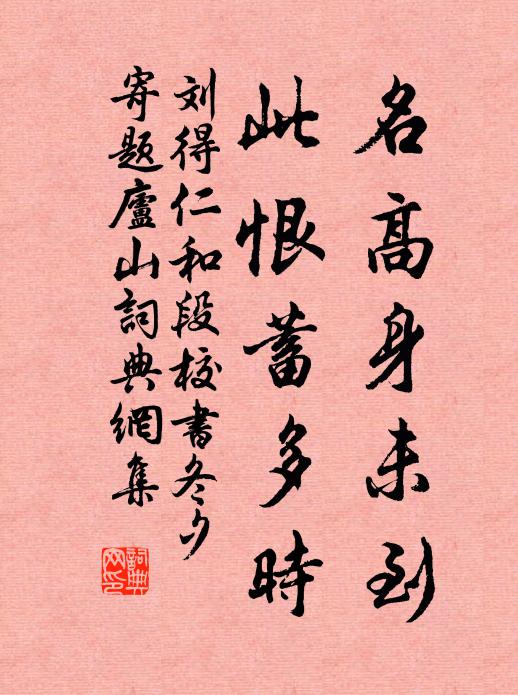 名高身未到
此恨蓄多時
刘得仁和段校書冬夕
寄题廬山詞典網集
詞典网印